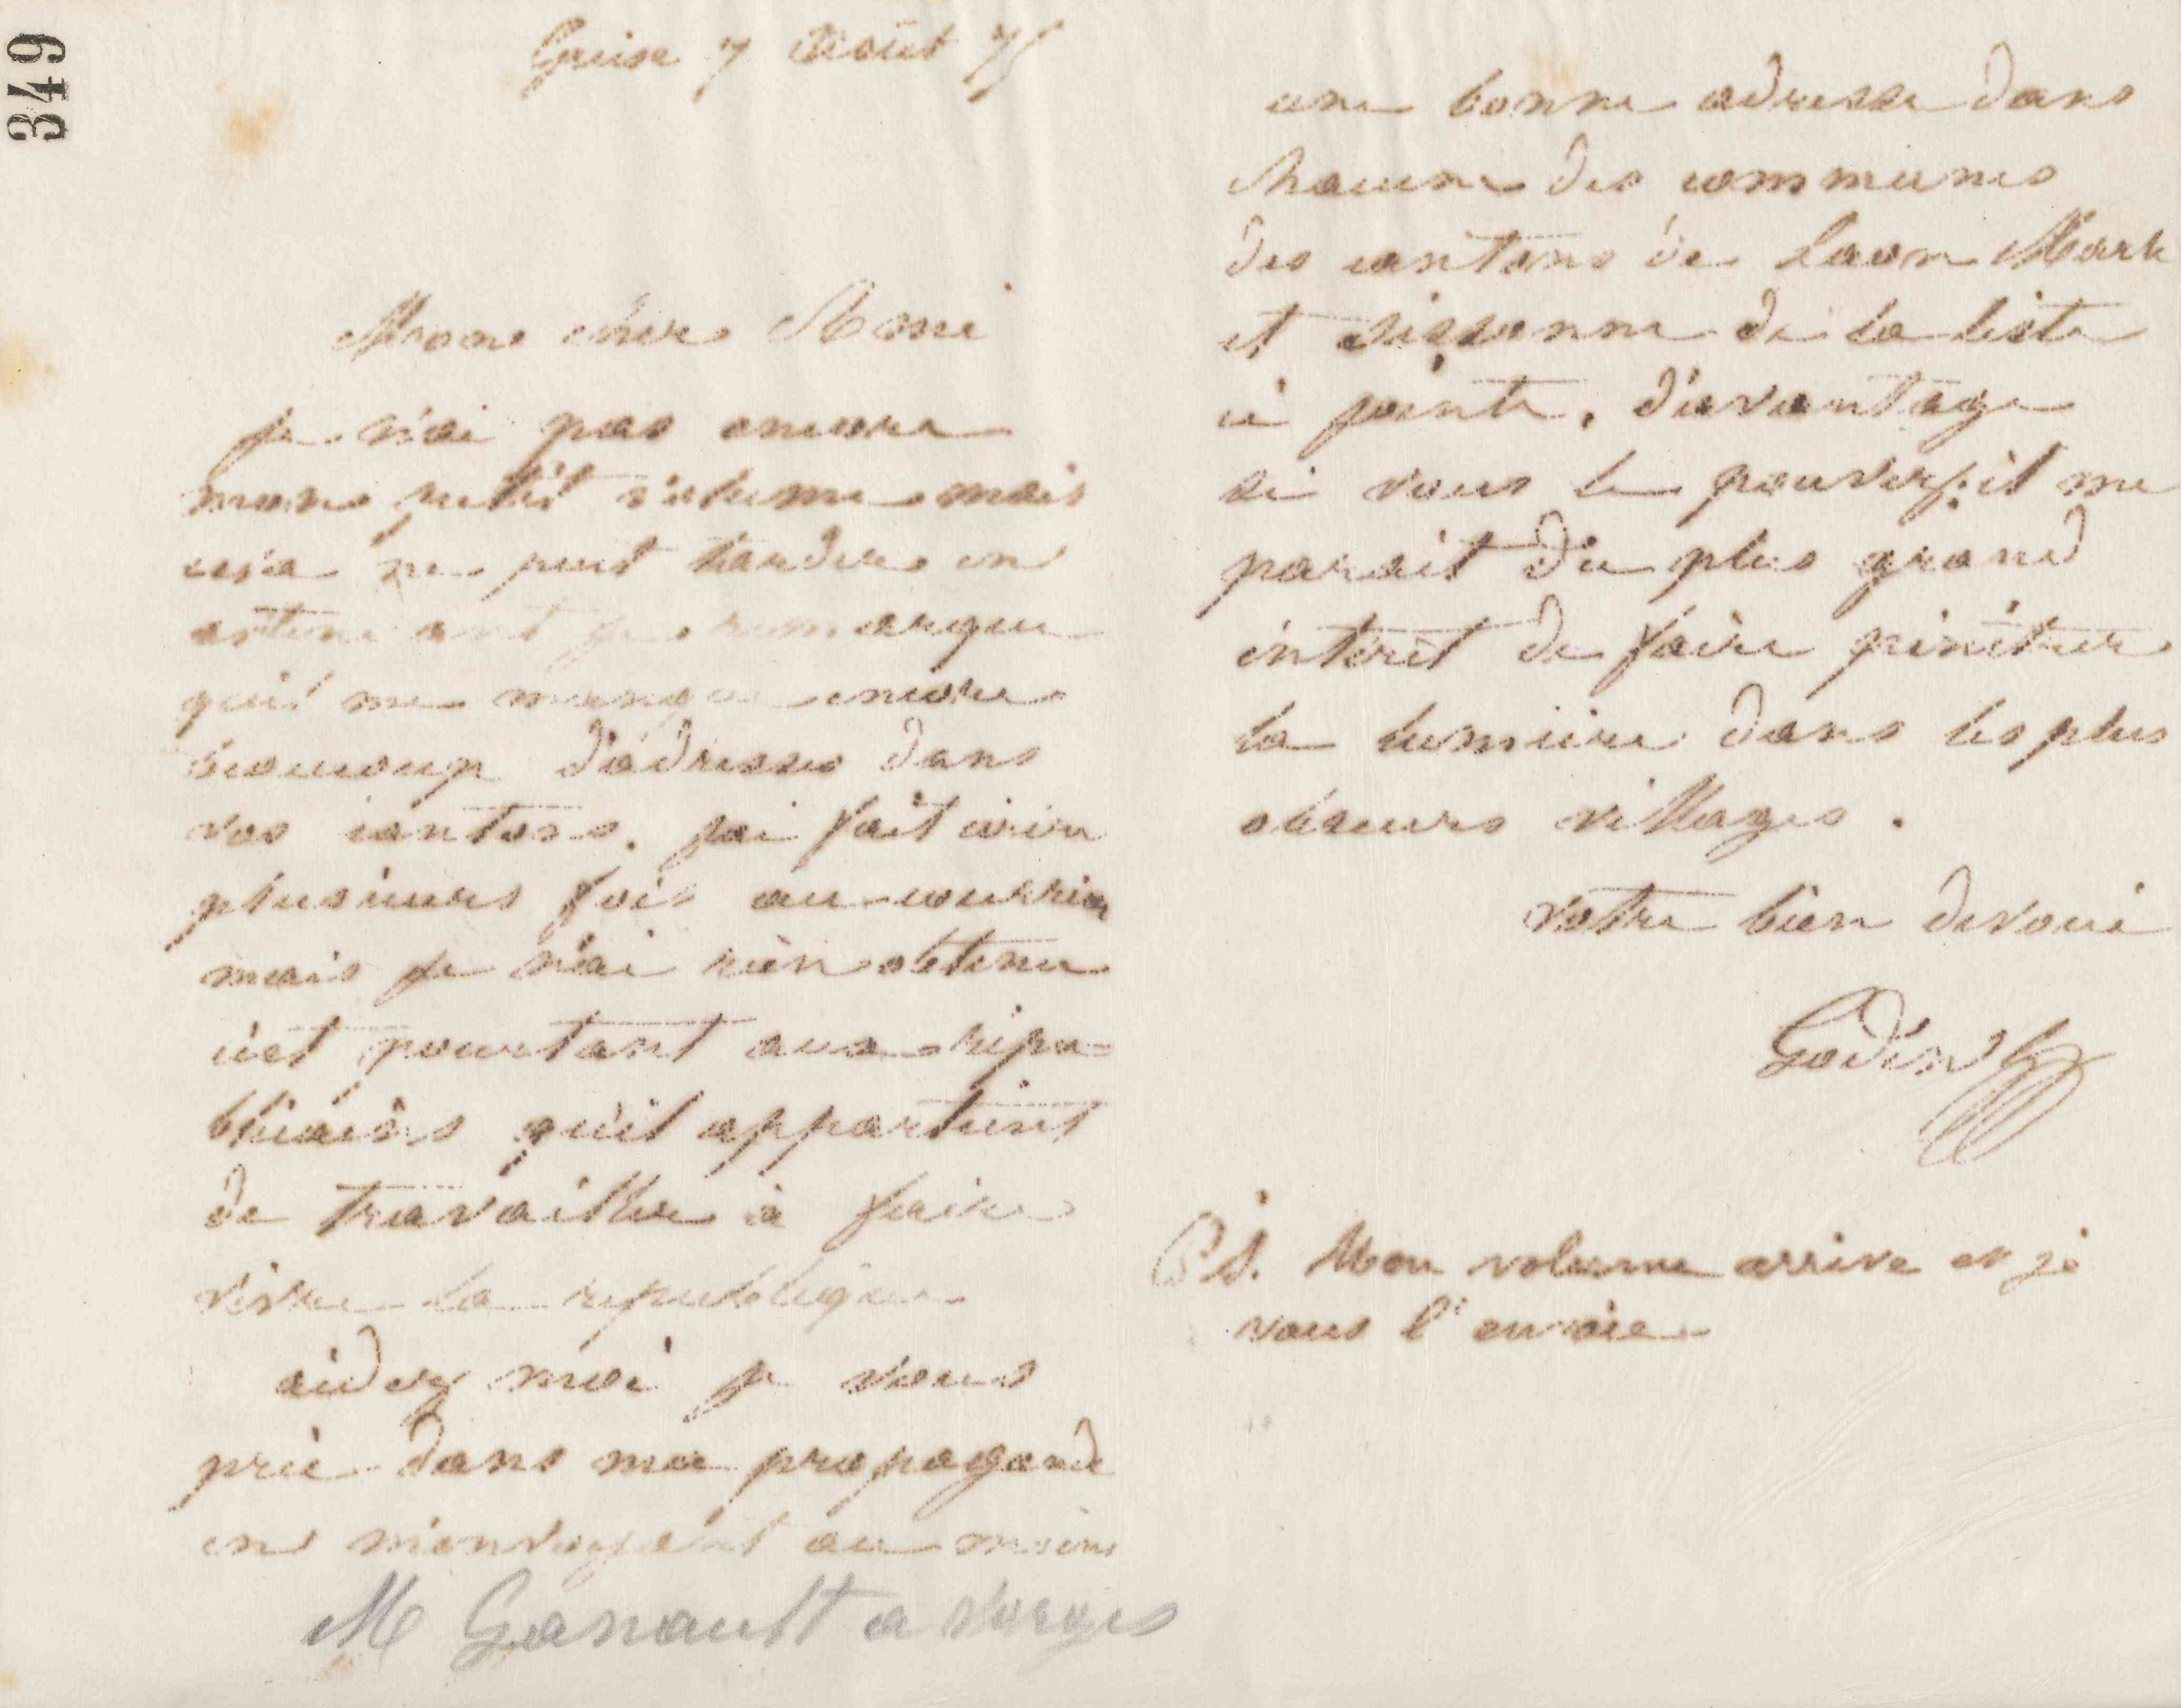 349
Guise 7 Août 75
Mon cher Ami
je n'ai pas encore
mon petit volume mais
cela ne peut tarder en
attendant je remarque
qu'il me manque encore
beaucoup d'adresses dans
vos cantons. j'ai fait écrire
plusieurs fois au courrier
mais je n'ai rien obtenu
c'est pourtant aux répu-
blicains qu'il appartient
de travailler à faire
vivre la republique
aidez moi je vous
prie dans ma propagande
en m'envoyant au moins
M Ganault a Vorges
une bonne adresse dans
chacune des communes
des cantons de Laon Marle
et Sissonne de la liste
ci jointe, d'avantage
si vous le pouvez; il me
parait du plus grand
intérêt de faire pénétrer
la lumière dans les plus
obscurs villages.
votre bien devoué
Godin
P S. Mon volume arrive et je
vous l'envoie.